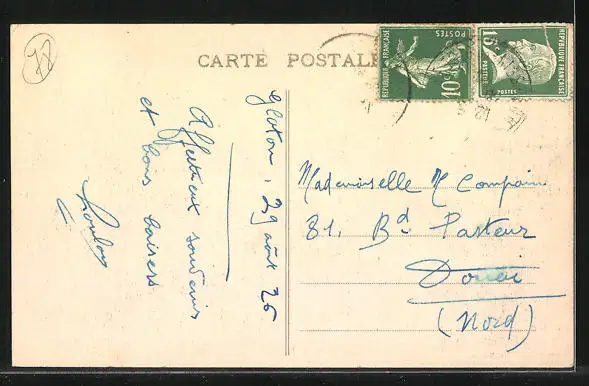 78
CARTE POSTALE
REPUBLIQUE FRANÇAISE
POSTES
10c
15c
PASTEUR
POSTES
REPUBLIQUE FRANÇAISE
Gloton, 29 août 26
Affectueux souvenirs
et bons baisers
Loulou
Mademoiselle M Compain
81, Bd Pasteur
Douai
(Nord)